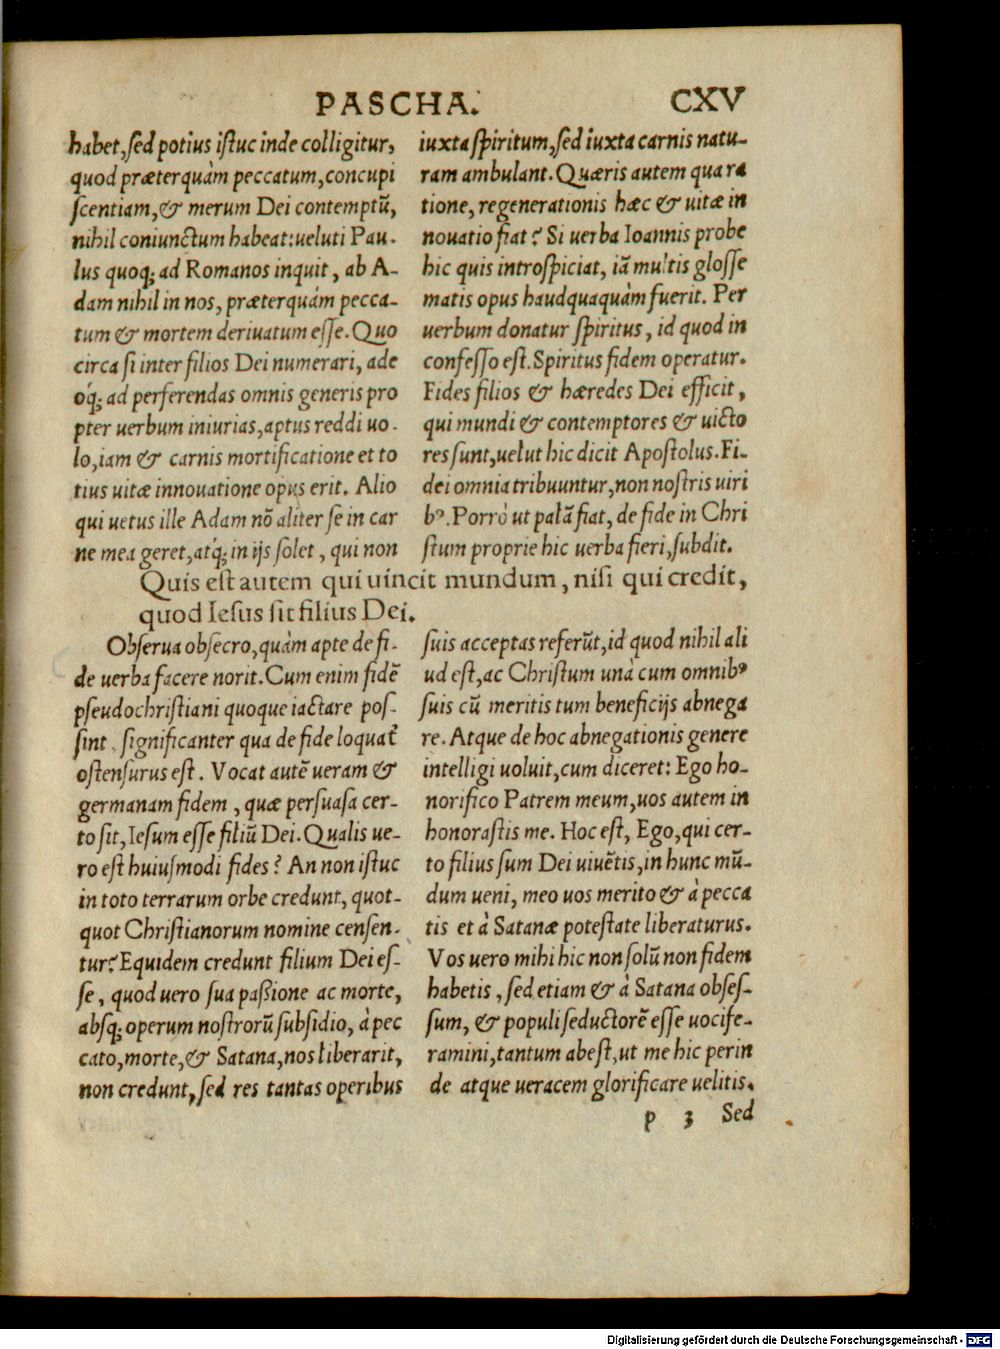 PASCHA. CXV
habet, sed potius istuc inde colligitur,
quod præterquàm peccatum, concupi
scentiam, & merum Dei contemptū,
nihil coniunctum habeat: ueluti Pau-
lus quoq; ad Romanos inquit, ab A-
dam nihil in nos, præterquám pecca-
tum & mortem deriuatum esse. Quo
circa si inter filios Dei numerari, ade
óq; ad perferendas omnis generis pro
pter uerbum iniurias, aptus reddi uo-
lo, iam & carnis mortificatione et to
tius uitæ innouatione opus erit. Alio
qui uetus ille Adam nō aliter se in car
ne mea geret, atq; in ijs solet, qui non
iuxta spiritum, sed iuxta carnis natu-
ram ambulant. Quæris autem qua ra
tione, regenerationis hæc & uitæ in
nouatio fiat? Si uerba Ioannis probe
hic quis introspiciat, iā multis glosse
matis opus haudquaquàm fuerit. Per
uerbum donatur spiritus, id quod in
confesso est. Spiritus fidem operatur.
Fides filios & hæredes Dei efficit,
qui mundi & contemptores & uicto
res sunt, uelut hic dicit Apostolus. Fi-
dei omnia tribuuntur, non nostris uiri
bꝰ. Porrò ut palā fiat, de fide in Chri
stum proprie hic uerba fieri, subdit.
Quis est autem qui uincit mundum, nisi qui credit,
quod Iesus sit filius Dei.
Obserua obsecro, quàm apte de fi-
de uerba facere norit. Cum enim fidē
pseudochristiani quoque iactare pos-
sint, significanter qua de fide loquat̃
ostensurus est. Vocat autē ueram &
germanam fidem, quæ persuasa cer-
to sit, Iesum esse filiū Dei. Qualis ue-
ro est huiusmodi fides? An non istuc
in toto terrarum orbe credunt, quot-
quot Christianorum nomine censen-
tur? Equidem credunt filium Dei es-
se, quod uero sua paßione ac morte,
absq; operum nostrorū subsidio, à pec
cato, morte, & Satana, nos liberarit,
non credunt, sed res tantas operibus
suis acceptas referūt, id quod nihil ali
ud est, ac Christum unà cum omnibꝰ
suis cū meritis tum beneficijs abnega
re. Atque de hoc abnegationis genere
intelligi uoluit, cum diceret: Ego ho-
norifico Patrem meum, uos autem in
honorastis me. Hoc est, Ego, qui cer-
to filius sum Dei uiuētis, in hunc mū-
dum ueni, meo uos merito & à pecca
tis et à Satanæ potestate liberaturus.
Vos uero mihi hic non solū non fidem
habetis, sed etiam & à Satana obses-
sum, & populi seductorē esse uocife-
ramini, tantum abest, ut me hic perin
de atque ueracem glorificare uelitis.
p 3 Sed
Digitalisierung gefördert durch die Deutsche Forschungsgemeinschaft - DFG